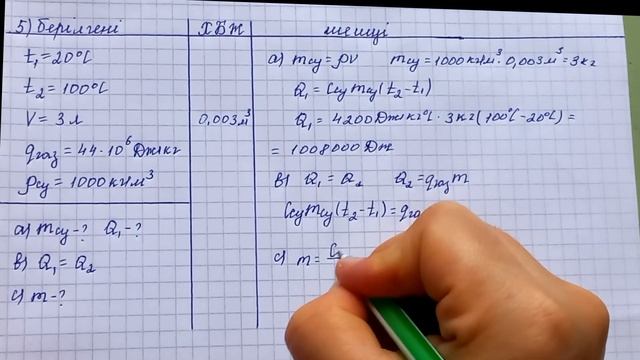 5) берілгені ХБЖ шешуі
t₁=20°C
t₂=100°C
V=3л 0,003м³
qгаз=44·10⁶Дж/кг
ρсу=1000кг/м³
а) mсу-? Q₁-?
в) Q₁=Q₂
с) m-?
а) mсу=ρV mсу=1000кг/м³·0,003м³=3кг
Q₁=Cсуmсу(t₂-t₁)
Q₁=4200Дж/кг°C·3кг(100°C-20°C)=
=1008000Дж
в) Q₁=Q₂ Q₂=qгазm
Cсуmсу(t₂-t₁)=qга
с) m=